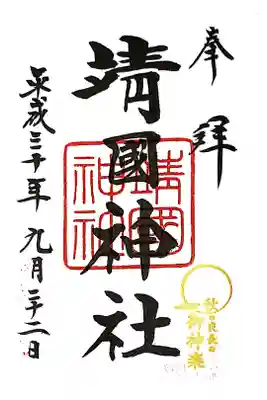 奉拝
靖國神社
平成三十年 九月二十二日
靖國神社
秋の夜長の
御神楽